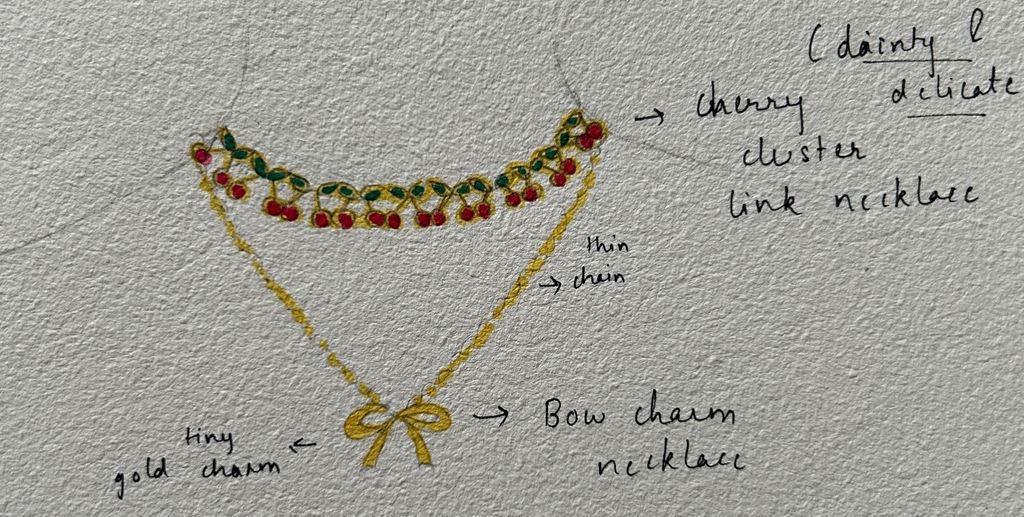 (dainty &
delicate
→ cherry
cluster
link necklace
thin
→ chain
→ Bow charm
necklace
tiny ←
gold charm